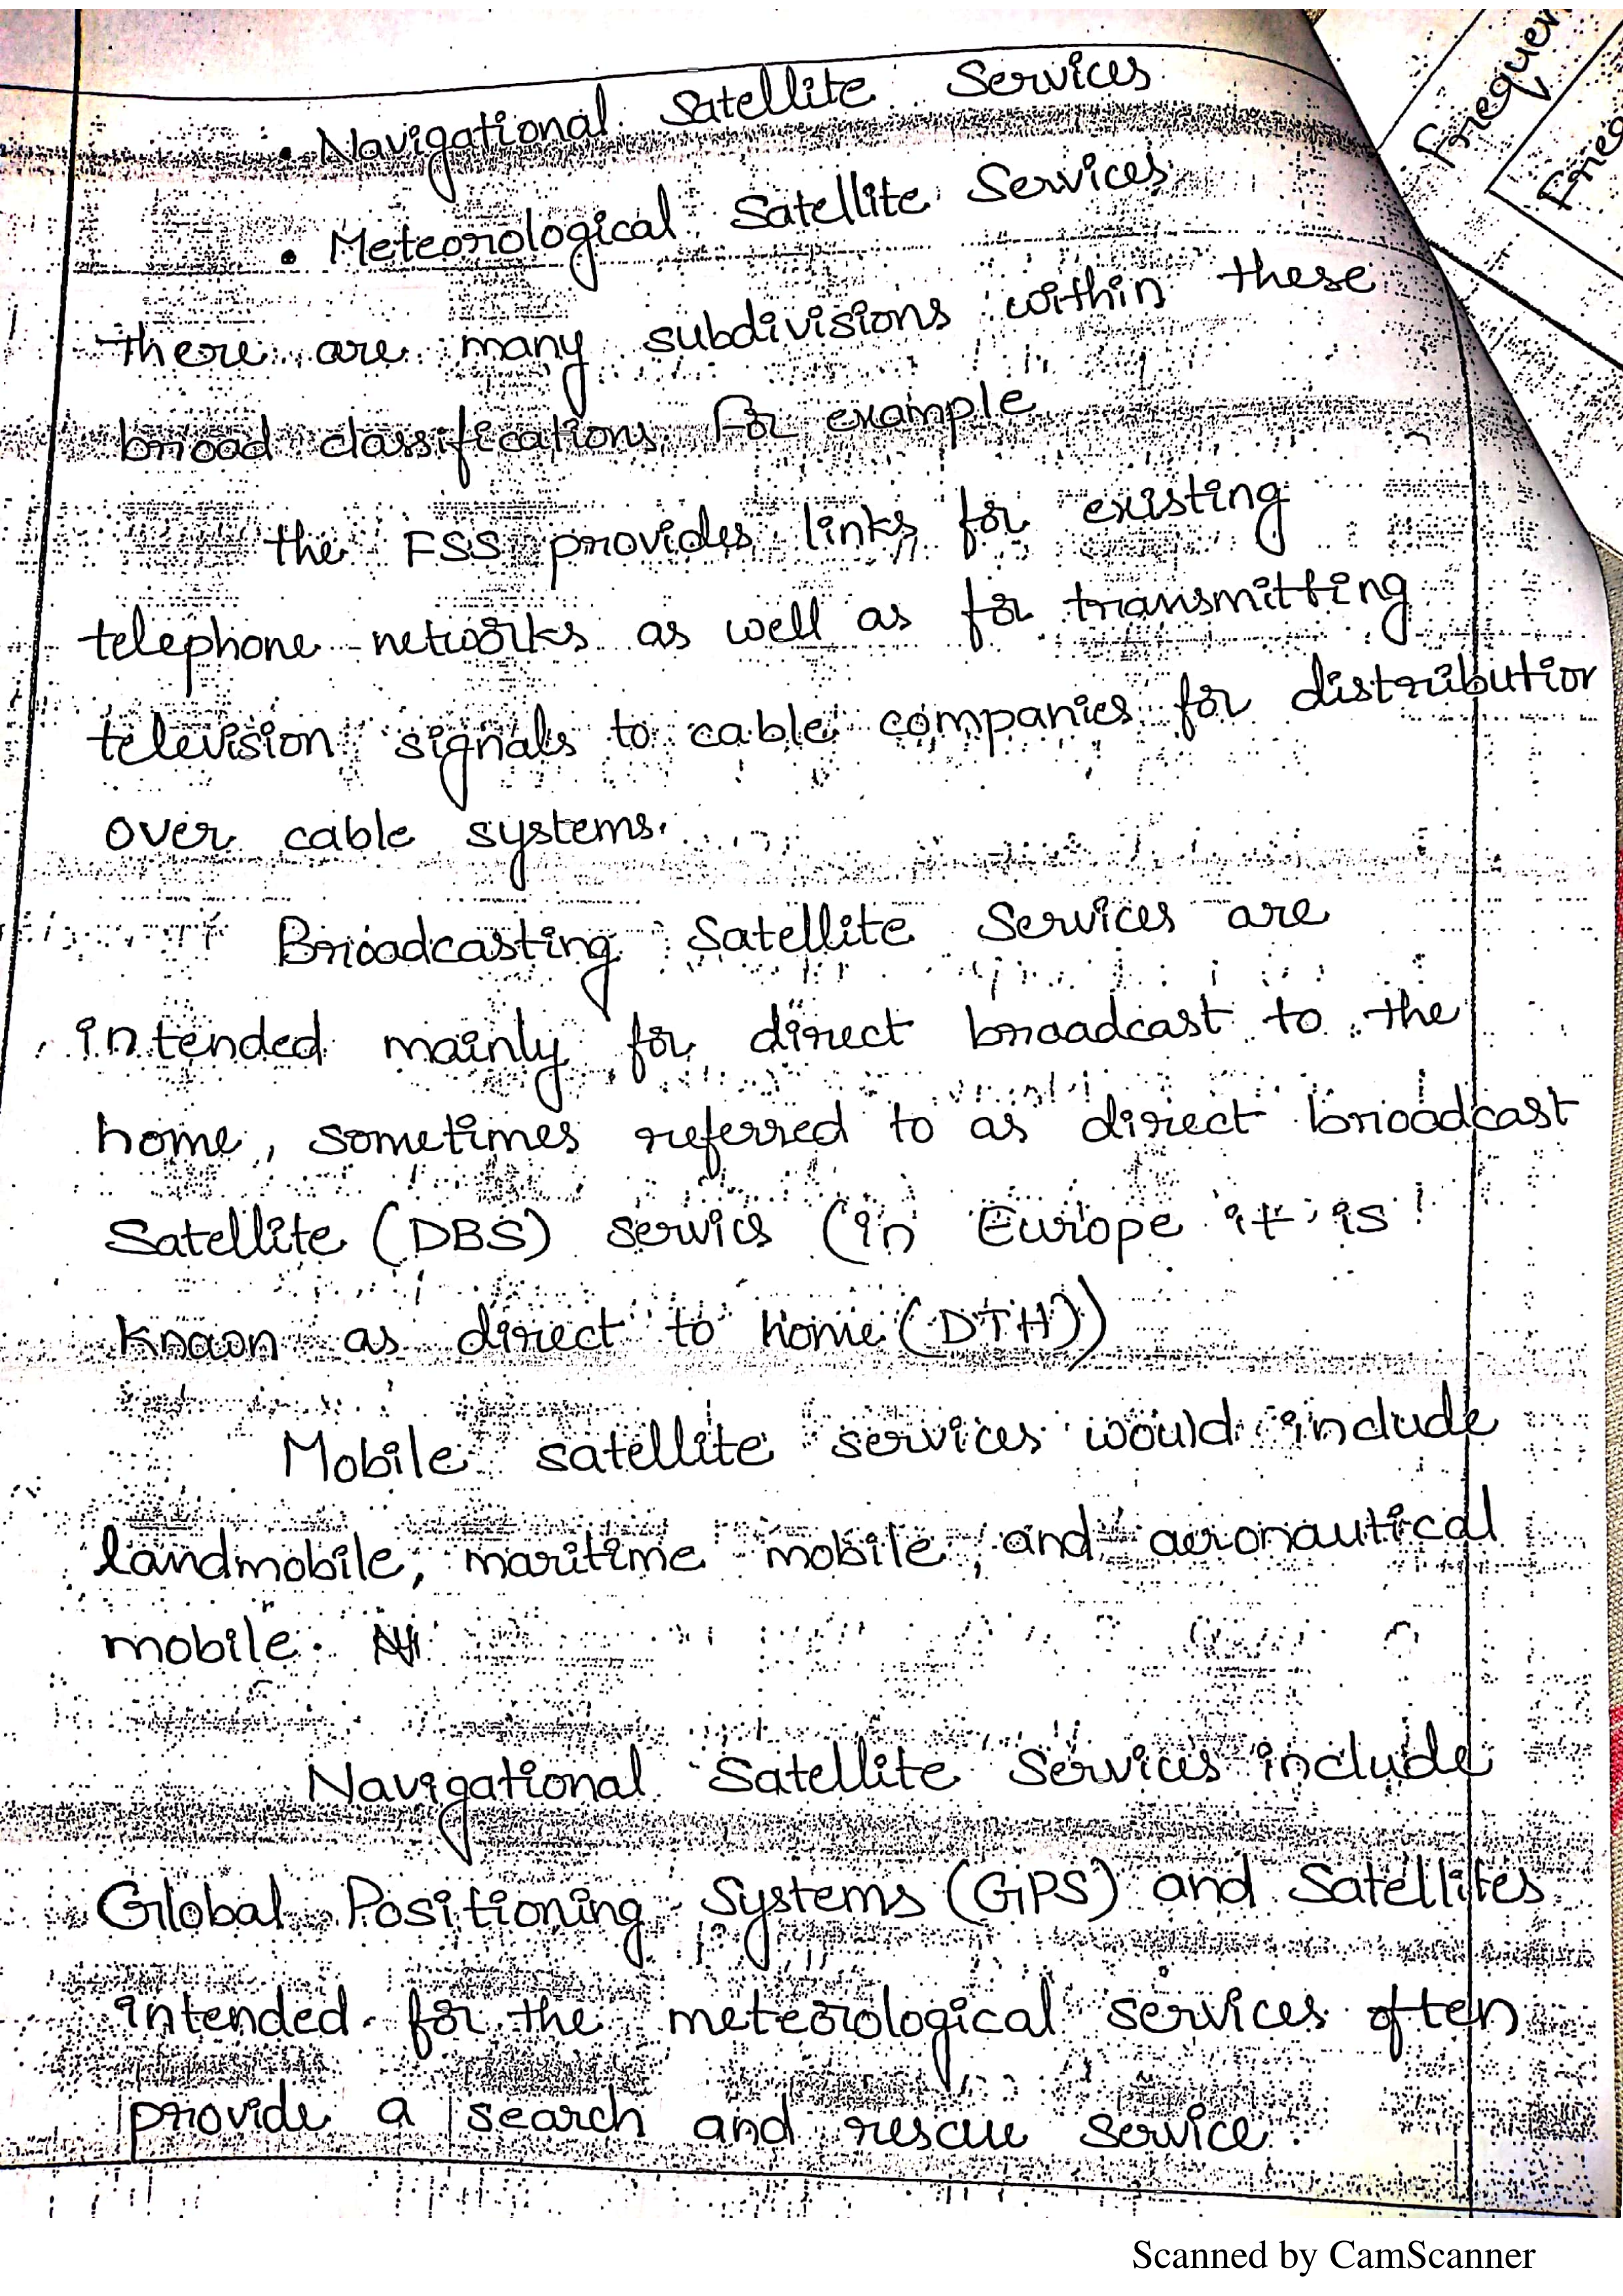 • Navigational Satellite Services
• Meteorological Satellite Services
there are many subdivisions within these
broad classifications. For example
the FSS provides links for existing
telephone networks as well as for transmitting
television signals to cable companies for distribution
over cable systems.
Broadcasting Satellite Services are
intended mainly for direct broadcast to the
home, sometimes referred to as direct broadcast
Satellite (DBS) servics (in Europe it is
known as direct to home (DTH))
Mobile satellite services would include
landmobile, maritime mobile, and aeronautical
mobile.
Navigational Satellite Services include
Global Positioning Systems (GPS) and Satellites
intended for the meteorological services often
provide a search and rescue service.
Scanned by CamScanner